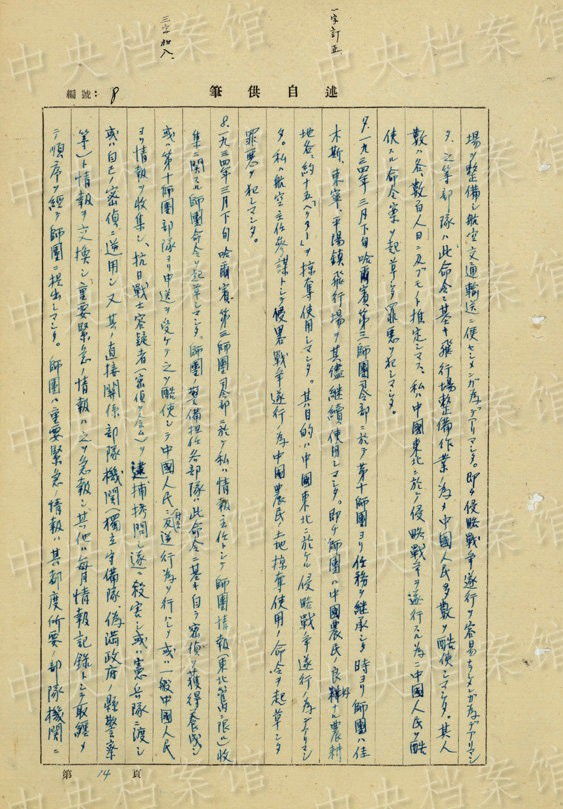 一字訂正
三字加入、
編號：8
筆供自述
場ヲ整備シ航空交通輸送ニ便セシメンガ為デアリマシタ。即チ侵略戦争遂行ヲ容易ナラシメンガ為デアリマシ
タ、之等部隊ハ此命令ニ基キ飛行場整備作業ノ為メ中国人民多数ヲ酷使シマシタ。其人
数ハ各、数百人日ニ及ブモノト推定シマス、私ハ中國東北ニ於テ侵略戦争ヲ遂行スル為ニ中国人民ヲ酷
使スル命令案ヲ起草シタ罪悪ヲ犯シマシタ。
9.一九三四年三月下旬哈爾賓第三師團司令部ニ於テ第十師團ヨリ任務ヲ継承シタ時ヨリ師團ハ佳
木斯、東寧、平陽鎮飛行場ヲ其儘継続使用シマシタ。即チ師團ハ中國農民ノ良好ナル農耕
地各、約十五ヘクタールヲ掠奪使用シマシタ。其目的ハ中國東北ニ於ケル侵略戦争遂行ノ為デアリマシ
タ。私ハ航空主任参謀トシテ侵畧戦争遂行ノ為中國農民ノ土地掠奪使用ノ命令ヲ起草シタ
罪悪ヲ犯シマシタ。
8.一九三四年三月下旬哈爾賓第三師團司令部ニ於テ私ハ情報主任トシテ師團情報(東北篇ニ限ル)收
集ニ関スル師團命令ヲ起草シマシタ、師團警備担任各部隊ハ此命令ニ基キ自ラ密偵ヲ獲得養成シ
或ハ第十師團部隊ヨリ申送ヲ受ケテ之ヲ酷使シテ中國人民ニ反逆行為ヲ行ハシメ或ハ一般中國人民
ヨリ情報ヲ收集シ、抗日戦士容疑者(密偵ヲ含ム)ヲ逮捕拷問シ遂ニ殺害シ或ハ憲兵隊ニ渡シ
或ハ自己ノ密偵ニ逆用シ又其ノ直接関係部隊機関(獨立守備隊、偽満政府ノ縣警察
等)ト情報ヲ交換シ重要緊急ノ情報ハ之ヲ急報シ其他ハ毎月情報記録トシテ取纏メ
テ順序ヲ経テ師團ニ提出シマシタ。師團ハ重要緊急情報ハ其都度所要ノ部隊機関ニ
第14頁
中央档案馆